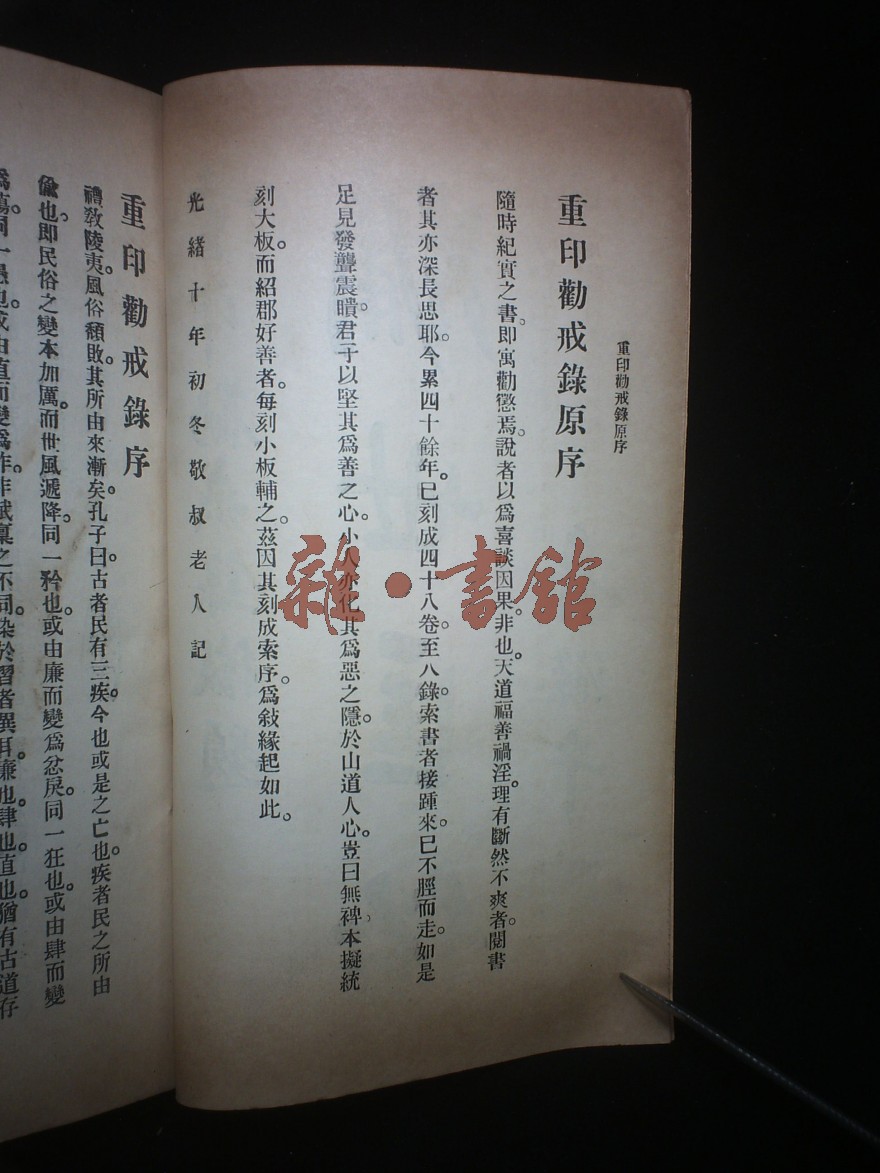 重印勸戒錄原序
重印勸戒錄原序
隨時紀實之書。即寓勸懲焉。說者以爲喜談因果。非也。天道福善禍淫。理有斷然不爽者。閱書
者其亦深長思耶。今累四十餘年。已刻成四十八卷。至八錄。索書者接踵來。已不脛而走。如是
足見發聾震聵。君子以堅其爲善之心。小人亦化其爲惡之隱。於山道人心。豈曰無裨、本擬統
刻大板。而紹郡好善者。每刻小板輔之。茲因其刻成索序。爲敍緣起如此。
光緒十年初冬敬叔老人記
重印勸戒錄序
禮敎陵夷。風俗頹敗。其所由來漸矣。孔子曰。古者民有三疾。今也或是之亡也。疾者民之所由
偸也。卽民俗之變本加厲。而世風遞降。同一矜也。或由廉而變爲忿戾。同一狂也。或由肆而變
爲蕩。同一愚也。或由直而變爲詐。非賦稟之不同。染於習者異耳。廉也。肆也。直也。猶有古道存
雜·書館